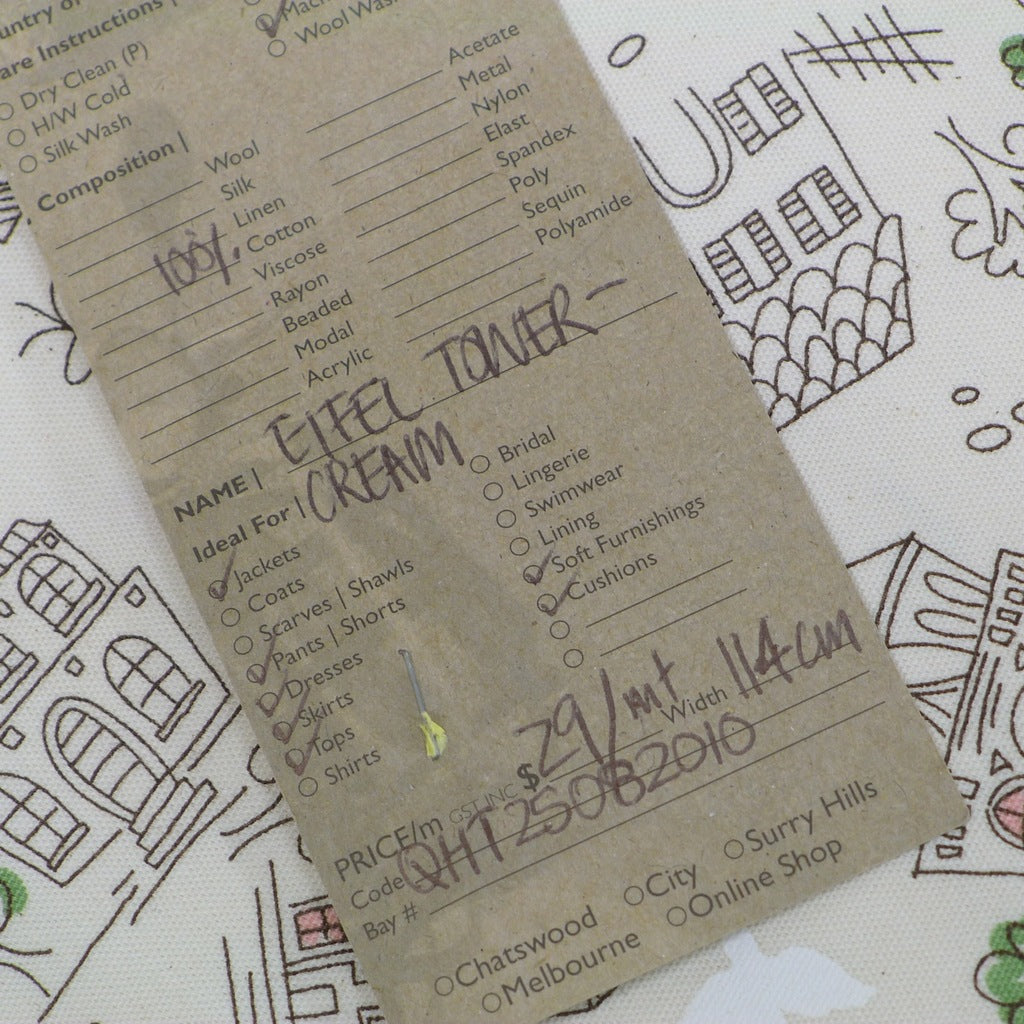 are Instructions |
Dry Clean (P)
H/W Cold
Silk Wash
Wool Wash
Composition |
Wool
Silk
Linen
100% Cotton
Viscose
Rayon
Beaded
Modal
Acrylic
Acetate
Metal
Nylon
Elast
Spandex
Poly
Sequin
Polyamide
NAME | EIFEL TOWER -
CREAM
Ideal For |
Jackets
Coats
Scarves | Shawls
Pants | Shorts
Dresses
Skirts
Tops
Shirts
Bridal
Lingerie
Swimwear
Lining
Soft Furnishings
Cushions
PRICE/m GST INC $ 29/mt Width 114cm
Code QHT250B2010
Bay #
Chatswood City Surry Hills
Melbourne Online Shop